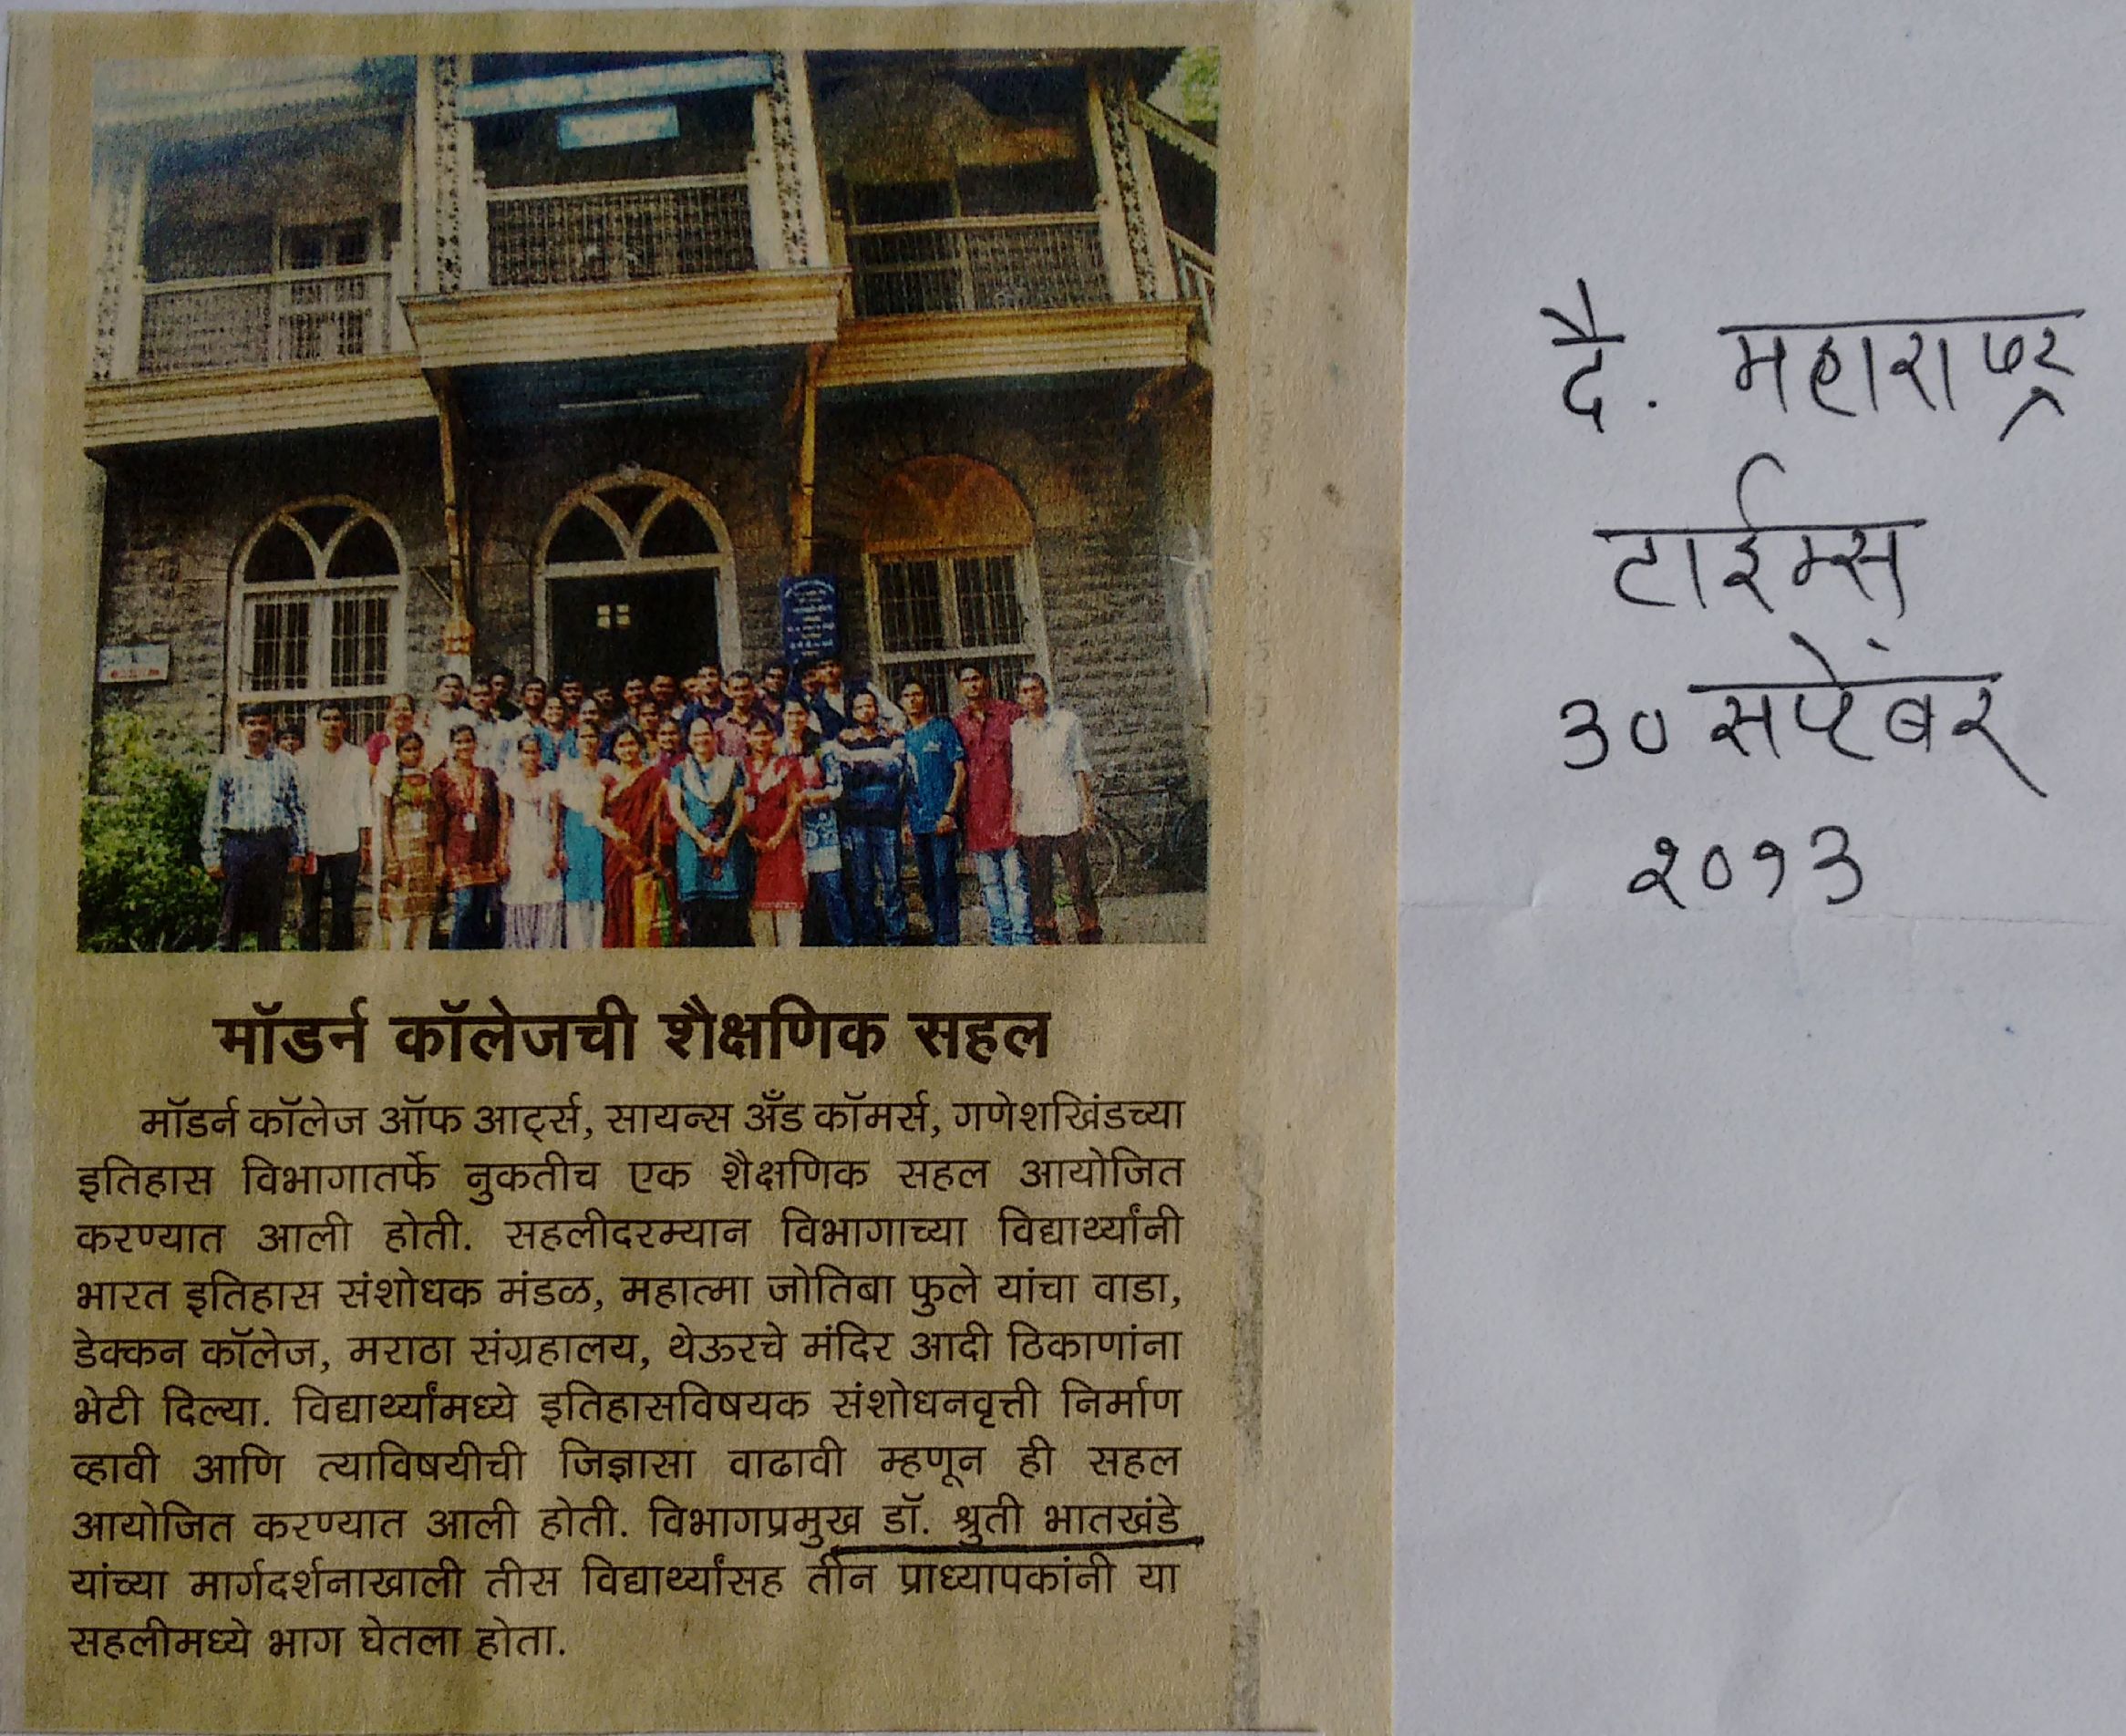 मॉडर्न कॉलेजची शैक्षणिक सहल
मॉडर्न कॉलेज ऑफ आर्ट्स, सायन्स अँड कॉमर्स, गणेशखिंडच्या
इतिहास विभागातर्फे नुकतीच एक शैक्षणिक सहल आयोजित
करण्यात आली होती. सहलीदरम्यान विभागाच्या विद्यार्थ्यांनी
भारत इतिहास संशोधक मंडळ, महात्मा जोतिबा फुले यांचा वाडा,
डेक्कन कॉलेज, मराठा संग्रहालय, थेऊरचे मंदिर आदी ठिकाणांना
भेटी दिल्या. विद्यार्थ्यांमध्ये इतिहासविषयक संशोधनवृत्ती निर्माण
व्हावी आणि त्याविषयीची जिज्ञासा वाढावी म्हणून ही सहल
आयोजित करण्यात आली होती. विभागप्रमुख डॉ. श्रुती भातखंडे
यांच्या मार्गदर्शनाखाली तीस विद्यार्थ्यांसह तीन प्राध्यापकांनी या
सहलीमध्ये भाग घेतला होता.
दै. महाराष्ट्र
टाईम्स
३० सप्टेंबर
२०१३